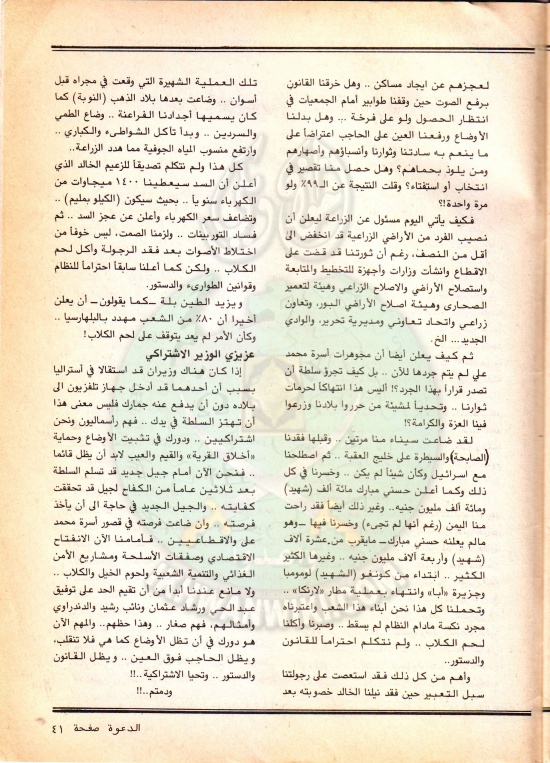 لعجزهم عن ايجاد مساكن .. وهل خرقنا القانون
برفع الصوت حين وقفنا طوابير أمام الجمعيات في
انتظار الحصول ولو على فرخة ... وهل بدلنا
الأوضاع ورفعنا العين على الحاجب اعتراضاً على
ما ينعم به سادتنا وثوارنا وأنسباؤهم وأصهارهم
ومن يلوذ بحماهم؟ وهل حصل منا تقصير في
انتخاب أو استفتاء؟ وقلت النتيجة عن الـ٩٩٪ ولو
مرة واحدة!؟
فكيف يأتي اليوم مسئول عن الزراعة ليعلن أن
نصيب الفرد من الأراضي الزراعية قد انخفض الى
أقل من النصف، رغم أن ثورتنا قد قضت على
الاقطاع وانشأت وزارات وأجهزة للتخطيط والمتابعة
واستصلاح الأراضي والاصلاح الزراعي وهيئة لتعمير
الصحارى وهيئة اصلاح الأراضي البور، وتعاون
زراعي واتحاد تعاوني ومديرية تحرير، والوادي
الجديد... الخ.
ثم كيف يعلن أيضا أن مجوهرات أسرة محمد
علي لم يتم جردها للآن .. بل كيف تجرؤ سلطة أن
تصدر قراراً بهذا الجرد؟! أليس هذا انتهاكاً لحرمات
ثوارنا .. وتحدياً لمشيئة من حرروا بلادنا وزرعوا
فينا العزة والكرامة؟!
لقد ضاعت سيناء منا مرتين .. وقبلها فقدنا
(الصابحة) والسيطرة على خليج العقبة .. ثم اصطلحنا
مع اسرائيل وكأن شيئاً لم يكن .. وخسرنا في كل
ذلك وكما أعلن حسني مبارك مائة ألف (شهيد)
ومائة ألف مليون جنيه.. وغير ذلك أيضا فقد راحت
منا اليمن (رغم أنها لم تجىء) وخسرنا فيها ـ وهو
مالم يعلنه حسني مبارك ـ مايقرب من عشرة آلاف
(شهيد) وأربعة آلاف مليون جنيه .. وغيرها الكثير
الكثير .. ابتداء من كونغو (الشهيد) لومومبا
وجزيرة «أبا» وانتهاء بعملية مطار «لارنكا» ..
وتحملنا كل هذا نحن أبناء هذا الشعب واعتبرناه
مجرد نكسة مادام النظام لم يسقط .. وصبرنا وأكلنا
لحم الكلاب .. ولم نتكلم احتراماً للقانون
والدستور..
وأهم من كل ذلك فقد استعصت على رجولتنا
سبل التعبير حين فقد نيلنا الخالد خصوبته بعد
تلك العملية الشهيرة التي وقعت في مجراه قبل
أسوان .. وضاعت بعدها بلاد الذهب (النوبة) كما
كان يسميها أجدادنا الفراعنة .. وضاع الطمي
والسردين .. وبدأ تآكل الشواطىء والكباري ..
وأرتفع منسوب المياه الجوفية مما هدد الزراعة..
كل هذا ولم نتكلم تصديقاً للزعيم الخالد الذي
أعلن أن السد سيعطينا ١٤٠٠ ميجاوات من
الكهرباء سنوياً .. بحيث سيكون (الكيلو بمليم) ..
وتضاعف سعر الكهرباء وأعلن عن عجز السد .. ثم
فساد التوربينات .. ولزمنا الصمت، ليس خوفاً من
اختلاط الأصوات بعد فقد الرجولة وأكل لحم
الكلاب .. ولكن كما أعلنا سابقاً احتراماً للنظام
وقوانين الطوارىء والدستور.
ويزيد الطين بلة ـ كما يقولون ـ أن يعلن
أخيرا أن ٨٠٪ من الشعب مهدد بالبلهارسيا ..
وكأن الأمر لم يعد يتوقف على لحم الكلاب!
عزيزي الوزير الاشتراكي
إذا كان هناك وزيران قد استقالا في أستراليا
بسبب أن أحدهما قد أدخل جهاز تلفزيون الى
بلاده دون أن يدفع عنه جمارك فليس معنى هذا
أن تهتز السلطة في يدك .. فهم رأسماليون ونحن
اشتراكيين .. ودورك في تثبيت الأوضاع وحماية
«أخلاق القرية» والقيم والعيب لابد أن يظل قائما
.. فنحن الآن أمام جيل جديد قد تسلم السلطة
بعد ثلاثين عاما من الكفاح لجيل قد تحققت
كفايته .. والجيل الجديد في حاجة الى أن يأخذ
فرصته .. وان ضاعت فرصته في قصور أسرة محمد
علي والاقطاعيين .. فأمامنا الآن الانفتاح
الاقتصادي وصفقات الأسلحة ومشاريع الأمن
الغذائي والتنمية الشعبية ولحوم الخيل والكلاب ..
ولا مانع عندنا أبدا من أن تقيم الحد على توفيق
عبد الحي ورشاد عثمان ونائب رشيد والدندراوي
وأمثالهم، فهم صغار .. وهذا حظهم.. والمهم الآن
هو دورك في أن تظل الأوضاع كما هي فلا تنقلب،
ويظل الحاجب فوق العين .. ويظل القانون
والدستور .. وتحيا الاشتراكية ..!!
ودمتم..!!
الدعوة صفحة ٤١